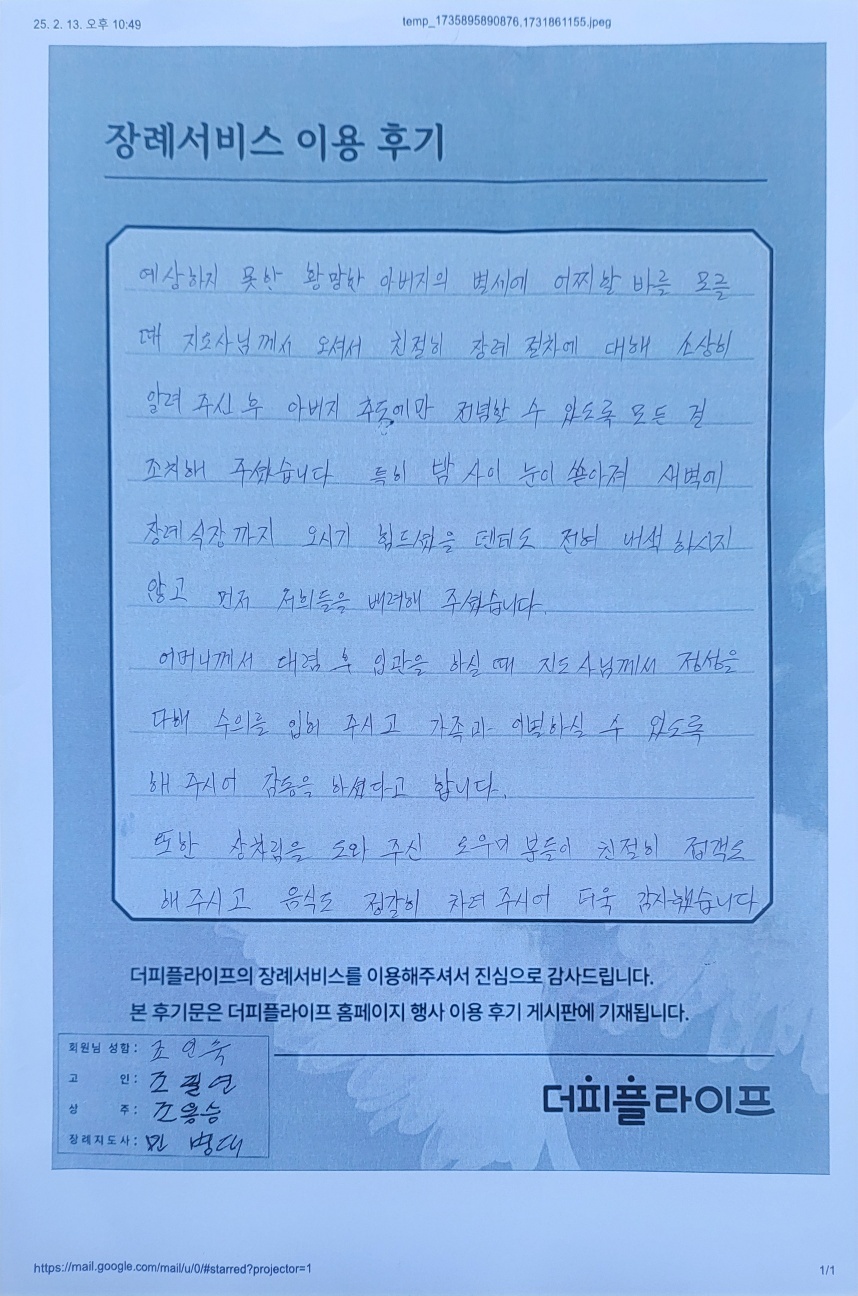 25. 2. 13. 오후 10:49
temp_1735895890876.1731861155.jpeg
장례서비스 이용 후기
예상하지 못한 황망한 아버지의 별세에 어찌할 바를 모를
때 지도사님께서 오셔서 친절히 장례 절차에 대해 소상히
알려 주신 후 아버지 추도에만 전념할 수 있도록 모든 걸
조치해 주셨습니다 특히 밤 사이 눈이 쏟아져 새벽에
장례식장까지 오시기 힘드셨을 텐데도 전혀 내색 하시지
않고 먼저 저희들을 배려해 주셨습니다.
어머니께서 대렴 후 입관을 하실 때 지도사님께서 정성을
다해 수의를 입혀 주시고 가족과 이별하실 수 있도록
해 주시어 감동을 하셨다고 합니다.
또한 상차림을 도와 주신 도우미 분들이 친절히 접객도
해 주시고 음식도 정갈히 차려 주시어 더욱 감사했습니다
더피플라이프의 장례서비스를 이용해주셔서 진심으로 감사드립니다.
본 후기문은 더피플라이프 홈페이지 행사 이용 후기 게시판에 기재됩니다.
회원님 성함: 조연숙
고 인: 조필연
상 주: 조용승
장례지도사: 민병대
더피플라이프
https://mail.google.com/mail/u/0/#starred?projector=1
1/1